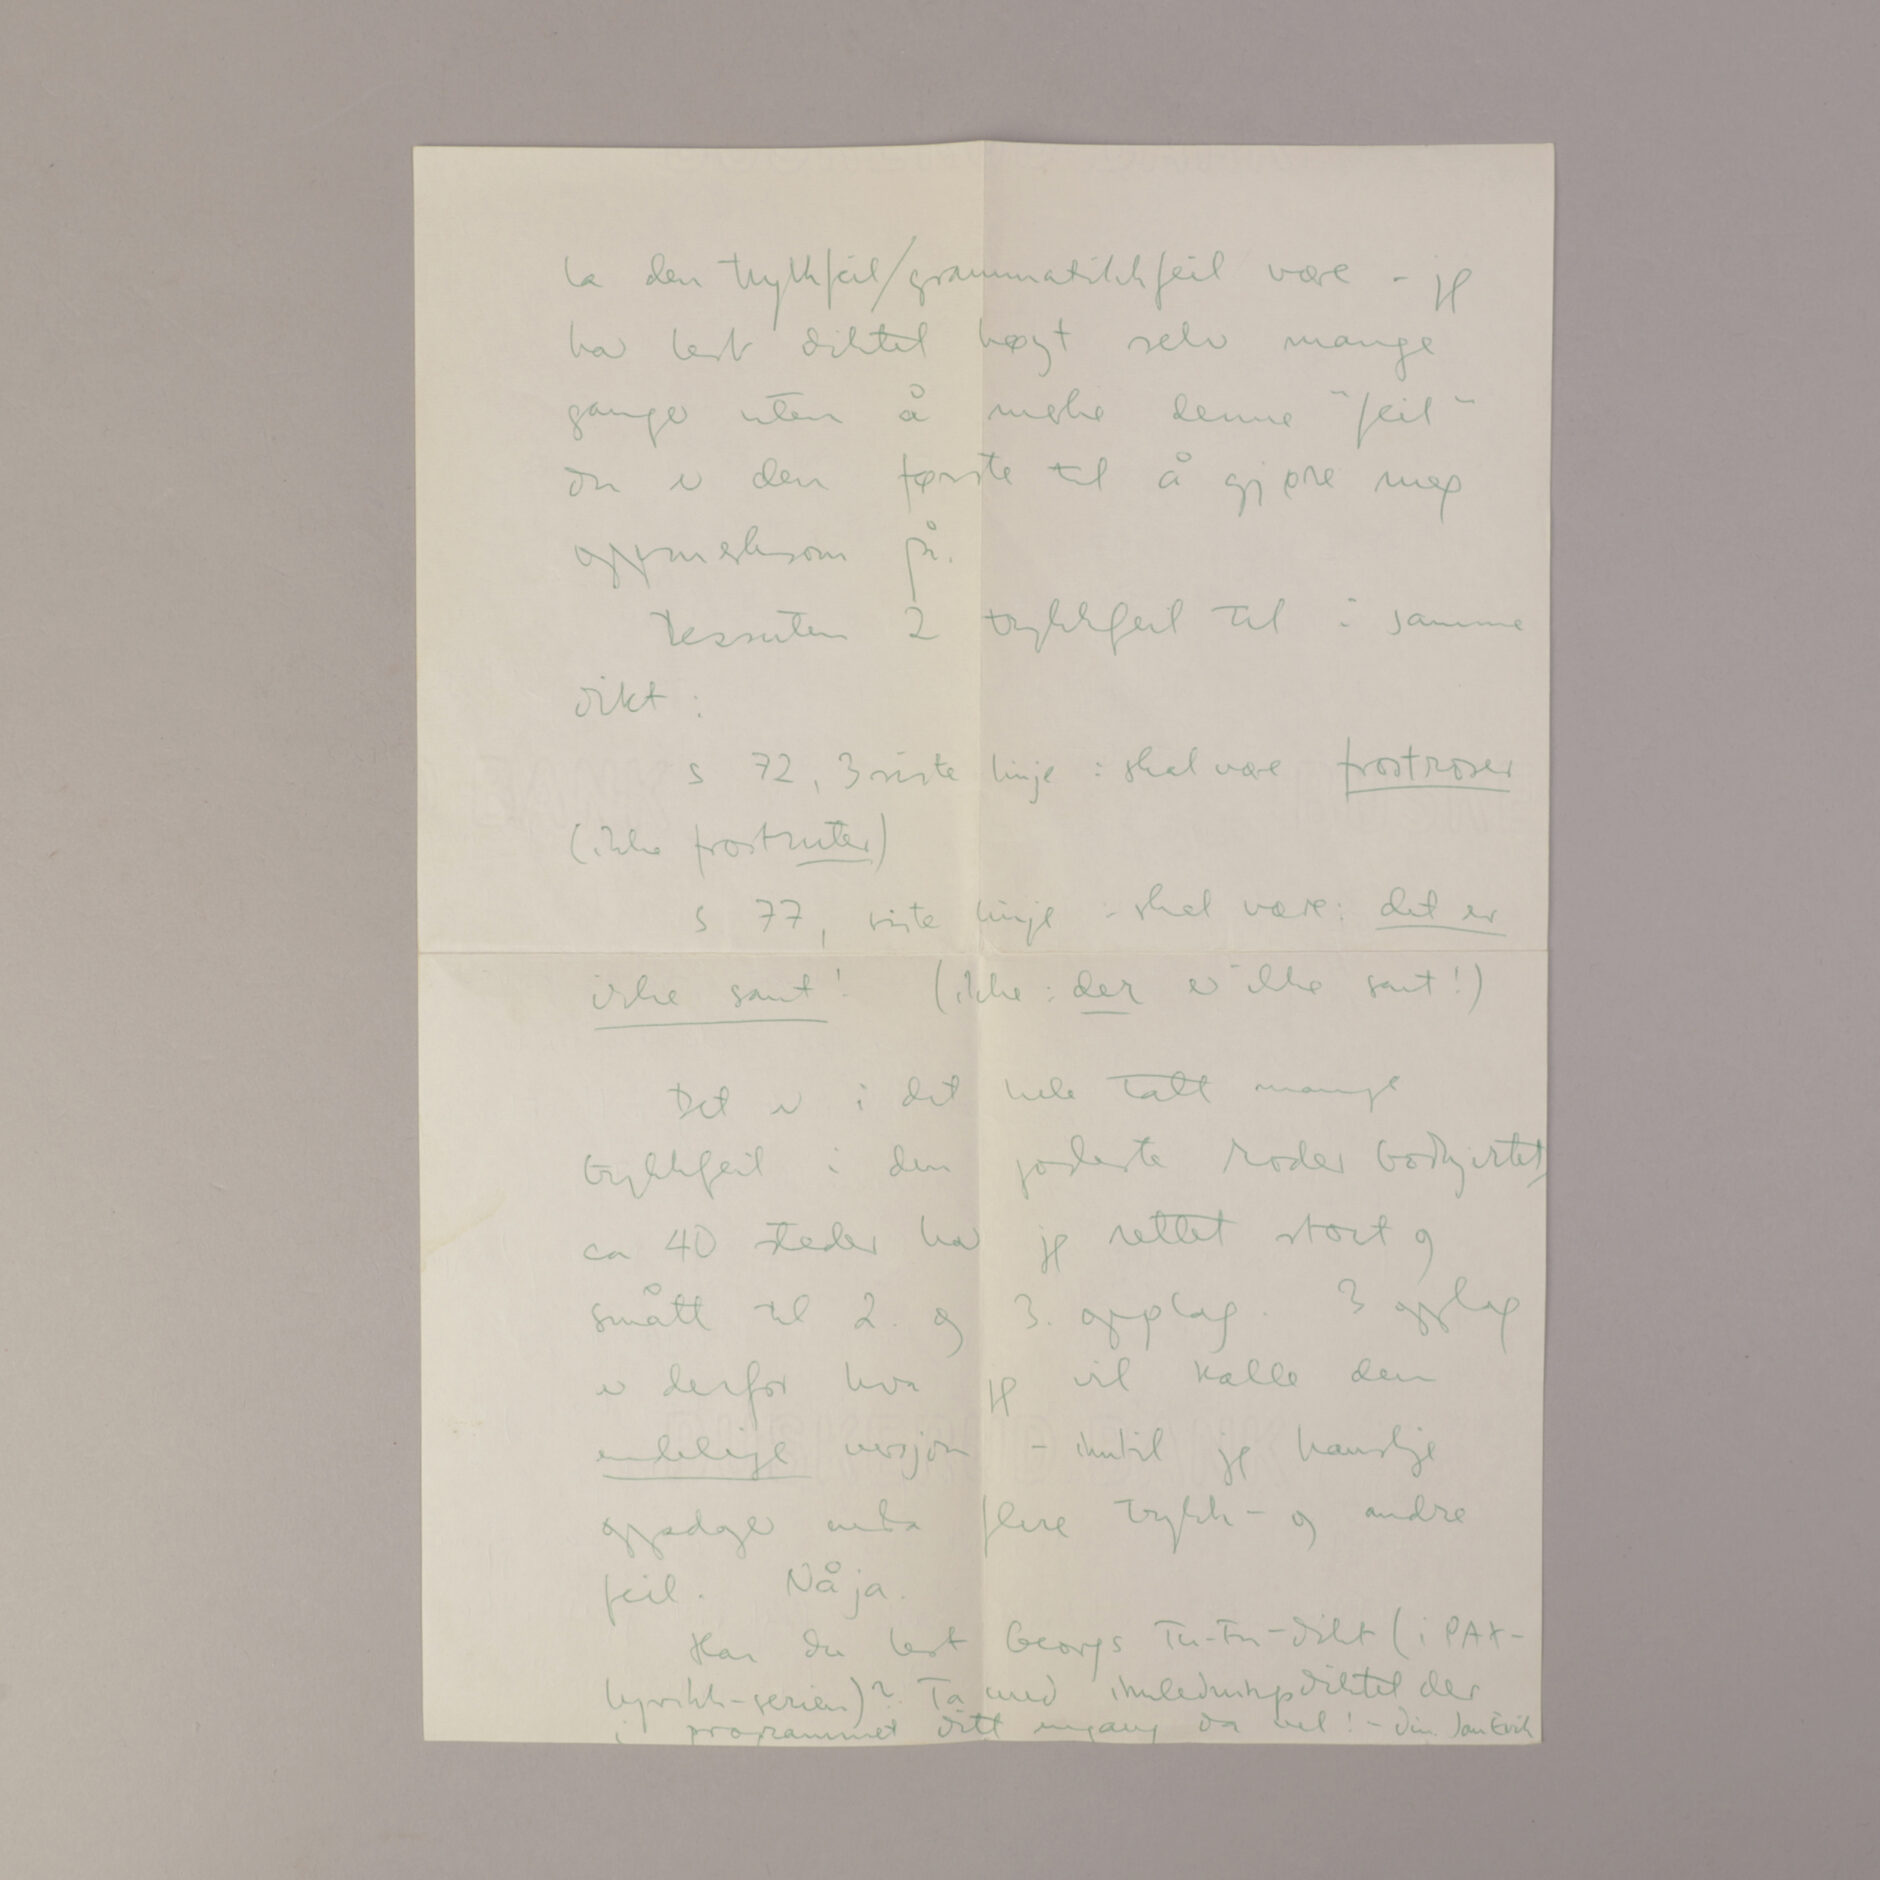 la den trykkfeil/grammatikkfeil være - jeg
har lest diktet høyt selv mange
ganger uten å merke denne "feil"
du er den første til å gjøre meg
oppmerksom på.
Dessuten 2 trykkfeil til i samme
dikt :
s 72, 3 siste linje : skal være frostroser
(ikke frostruter)
s 77, siste linje : skal være : det er
ikke sant! (ikke : der er ikke sant!)
Det er i det hele tatt mange
trykkfeil i den
ca 40 steder har jeg rettet stort og
smått til 2. og 3. opplag. 3 opplag
er derfor hva jeg vil kalle den
endelige versjon - inntil jeg kanskje
oppdager enda flere trykk- og andre
feil. Nåja.
Har du lest Georgs Tu-Fu-dikt (i PAX-
lyrikk-serien)? Ta med innledningsdiktet der
i programmet ditt engang da vel! - din Jan Erik